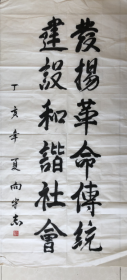 發揚革命傳統
建設和諧社會
丁亥年夏向守志